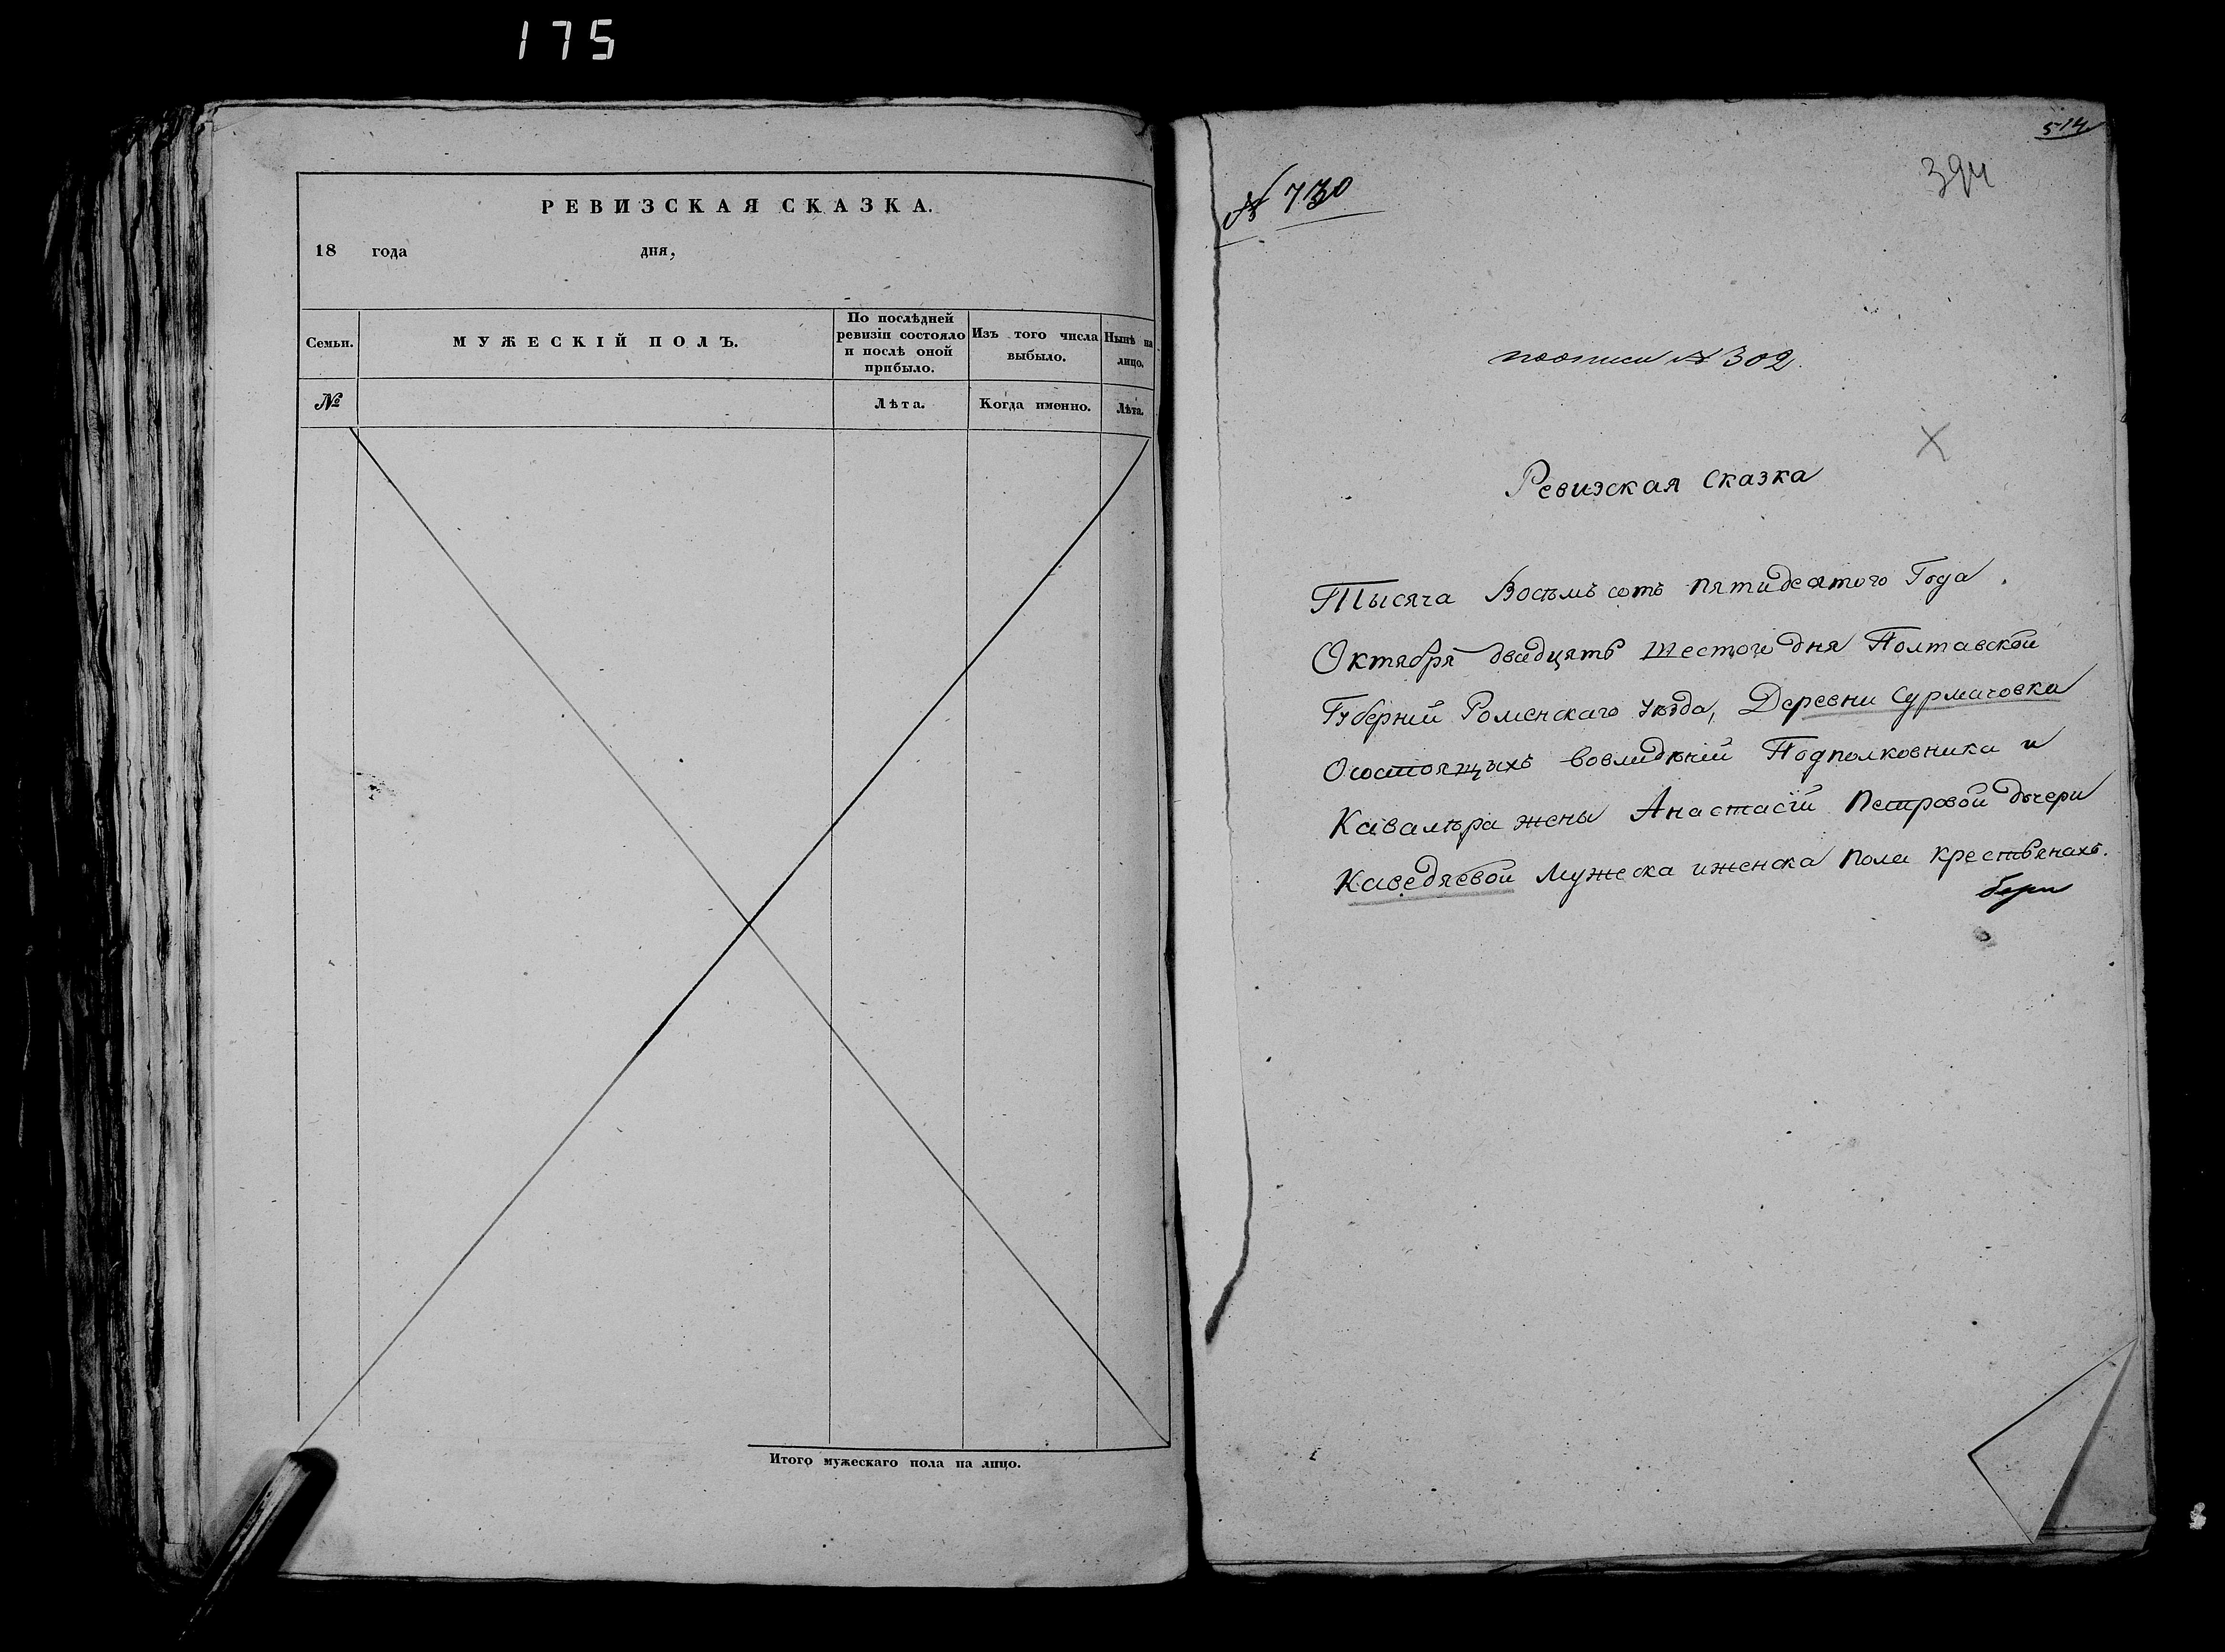 175
РЕВИЗСКАЯ СКАЗКА.
18 года дня,
Семьи.
МУЖЕСКІЙ ПОЛЪ.
По послѣдней
ревизіи состояло
и послѣ оной
прибыло.
Изъ того числа
выбыло.
Нынѣ на
лицо.
№
Лѣта.
Когда именно.
Лѣта.
Итого мужескаго пола на лицо.
514
394
№ 730
поописи № 302.
Ревизская сказка
Тысяча Восѣмъ сотъ пятидесятого Года.
Октября двадцятъ шестого дня Полтавской
Губерніи Роменскаго уѣзда, Деревни Сурмачовка
Осостоящыхъ вовлидѣніи Подполковника и
Кавалѣра жены Анастасіи Петровой дочери
Каведяевой Мужеска иженска пола крестьянахъ.